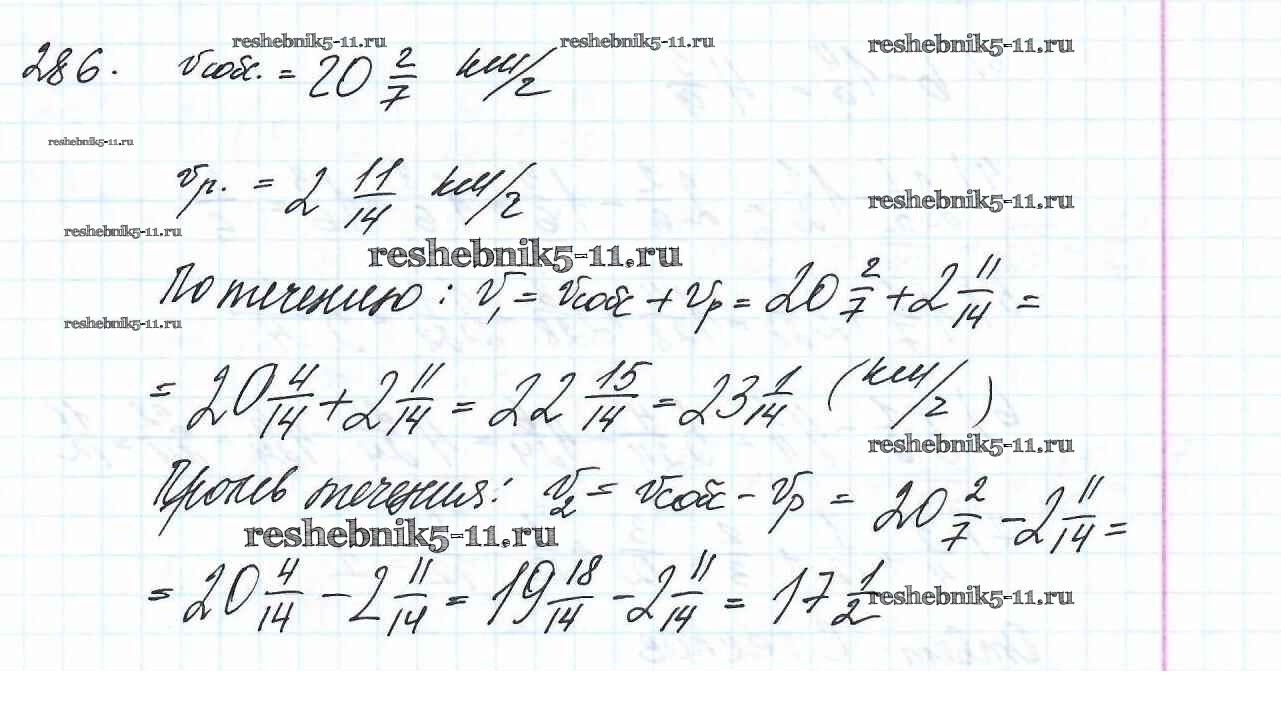 reshebnik5-11.ru reshebnik5-11.ru reshebnik5-11.ru
286. Vсоб. = 20 2/7 км/ч
reshebnik5-11.ru
Vр. = 2 11/14 км/ч
reshebnik5-11.ru
reshebnik5-11.ru
reshebnik5-11.ru
По течению: V₁ = Vсоб + Vр = 20 2/7 + 2 11/14 =
reshebnik5-11.ru
= 20 4/14 + 2 11/14 = 22 15/14 = 23 1/14 (км/ч)
reshebnik5-11.ru
Против течения: V₂ = Vсоб - Vр = 20 2/7 - 2 11/14 =
reshebnik5-11.ru
= 20 4/14 - 2 11/14 = 19 18/14 - 2 11/14 = 17 1/2
reshebnik5-11.ru